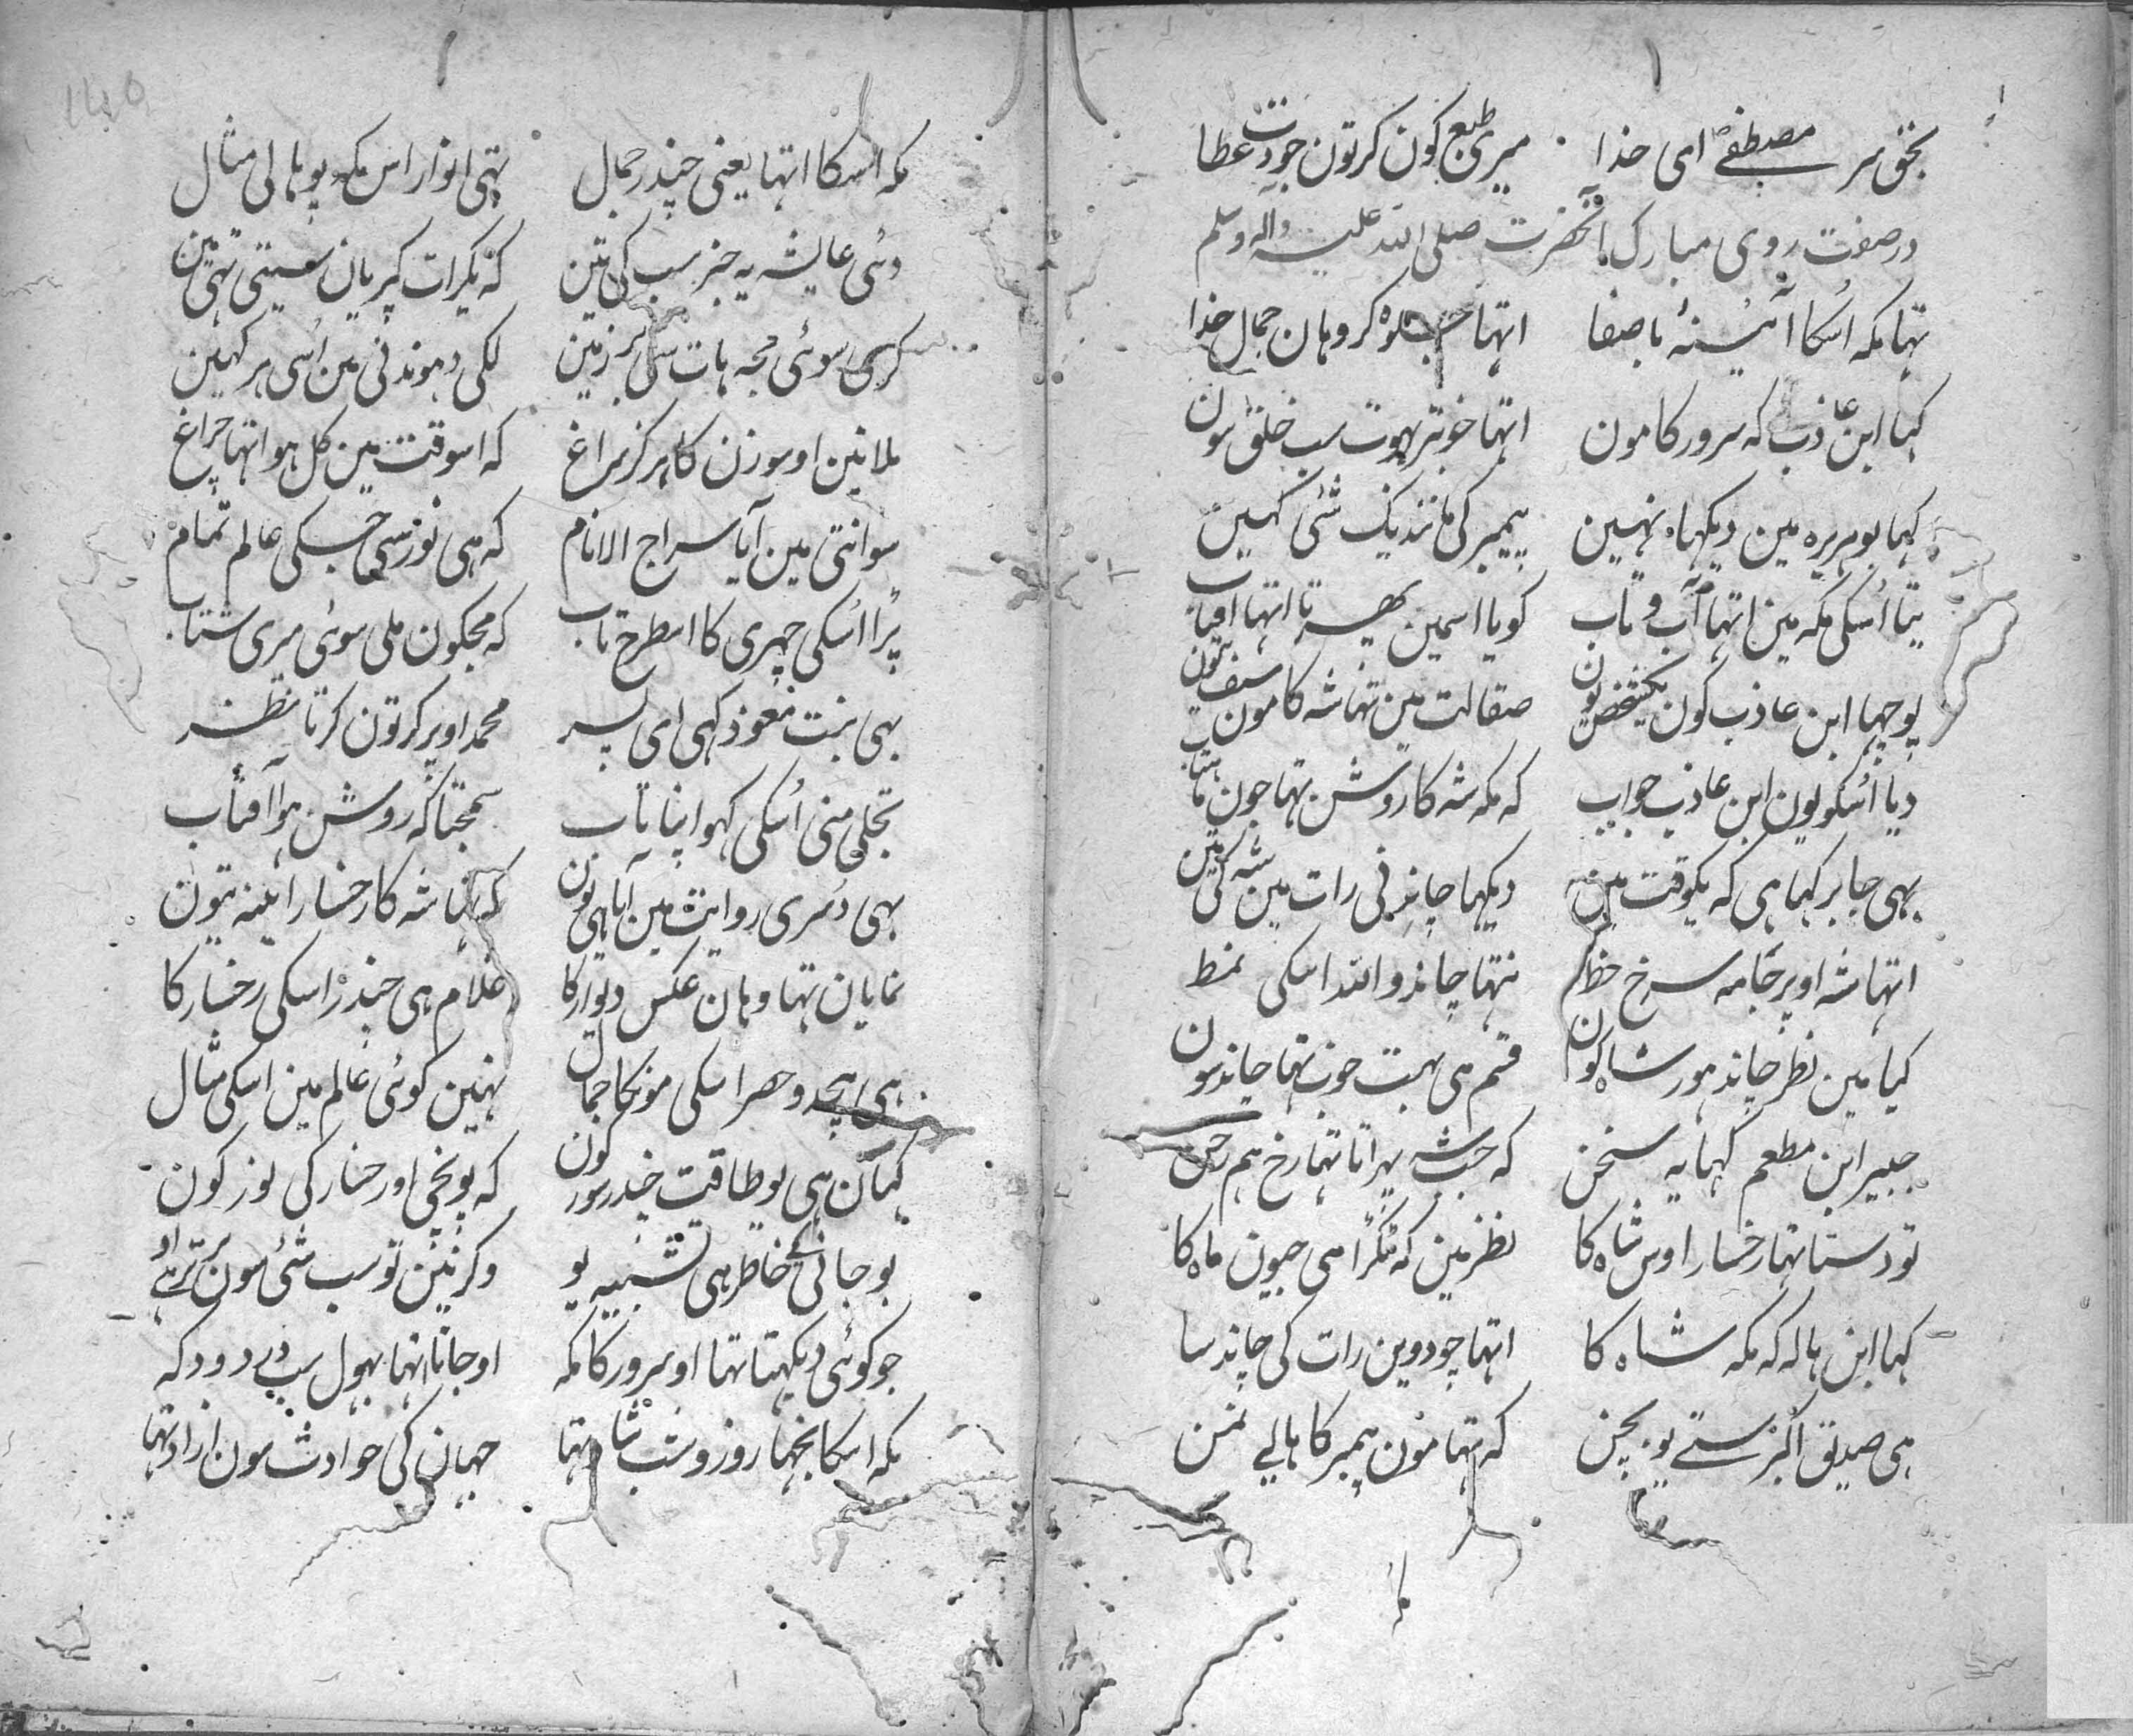 بحق سر مصطفےٰ ای خدا میری طبع کون کر تون جودت عطا
در صفت روی مبارک آنحضرت صلی الله علیه وآله وسلم
تہا مکہ اُسکا آئینۂ با صفا اتہا جلوہ کر وہان جمال خدا
کہا ابن عاذب کہ سرور کا مون اتہا خوبتر بہوت سب خلق سون
کہا بو ہریرہ مین دیکہا نہین پیمبر کی مانند یک شئی کہین
یتا اُسکی مکہ مین اتہا آب و تاب کویا اسمین پھرتا اتہا افتاب
پوچہا ابن عاذب کون یکشخص یون صقالت مین تہا شہ کا مون سیف تون
دیا اُسکو یون ابن عاذب جواب کہ مکہ شہ کا روشن تہا جون ماہتاب
بہی جابر کہا ہی کہ یکوقت مین دیکہا چاندنی رات مین شہ کی تین
اتہا شہ اوپر جامہ سرخ خط نتہا چاند والله اسکی نمط
کیا مین نظر چاند ہور شاہ کون قسم ہی بہت خوب تہا چاند سون
جبیر ابن مطعم کہا یہ سخن کہ جب شہ پہراتا تہا رخ ہم رخن
تو دستا تہا رخسار اوس شاہ کا نظر مین کہ ٹکڑا ہی جیون ماہ کا
کہا ابن ہالہ کہ مکہ شاہ کا اتہا چودوین رات کی چاند سا
ہی صدیق اکبر ستے یو بچن کہ تہا مون پیمبر کا ہالے نمن
مکہ اسکا اتہا یعنی چندر جمال تہی انوار اس مکہ پو ہالی مثال
دئی عایشہ یہ خبر سب کی تین کہ یکرات کپریان سیتی تہی مین
کری سوئی مجہ ہات سی بر زمین لکی دہوندنی مین اُسی ہر کہین
ملا نین او سوزن کا ہرکز سراغ کہ اسوقت مین کل ہوا تہا چراغ
سو اتنی مین آیا سراج الانام کہ ہی نور سی جسکی عالم تمام
پڑا اُسکی چہری کا اسطرح تاب کہ مجکون ملی سوئی میری شتاب
بہی بنت معوذ کہی ای پسر محمد اوپر کر تون کرتا نظر
تجلی منی اُسکی کہو اپنا تاب سمجتا کہ روشن ہوا آفتاب
بہی دسری روایت مین آیا ہی یون کہ تہا شہ کا رخسار ایینہ تیون
نمایان تہا وہان عکس دیوار کا غلام ہی چندر اسکی رخسار کا
ہی بیحد و حصر اسکی مونکا جمال نہین کوئی عالم مین اسکی مثال
کہان ہی یو طاقت چندر سور کون کہ پونچی او رخسار کی نور کون
بوجانے خاطر ہی تشبیہ یو وکر نین تو سب شئی سون برتر ہے او
جو کوئی دیکہتا تہا او سرور کا مکہ او جاتا اتہا بہول سب درد دکہ
مکہ اسکا نچہا روز و شب شاد تہا جہان کی حوادث سون ازاد تہا